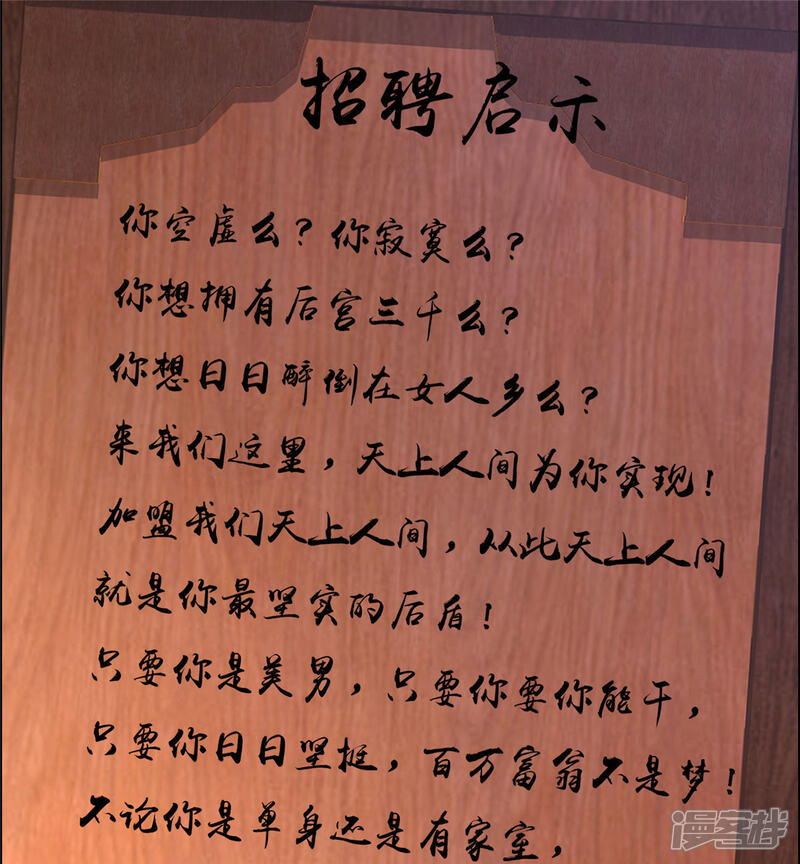 招聘启示
你空虚么？你寂寞么？
你想拥有后宫三千么？
你想日日醉倒在女人乡么？
来我们这里，天上人间为你实现！
加盟我们天上人间，从此天上人间
就是你最坚实的后盾！
只要你是美男，只要你要你能干，
只要你日日坚挺，百万富翁不是梦！
不论你是单身还是有家室，
漫客栈